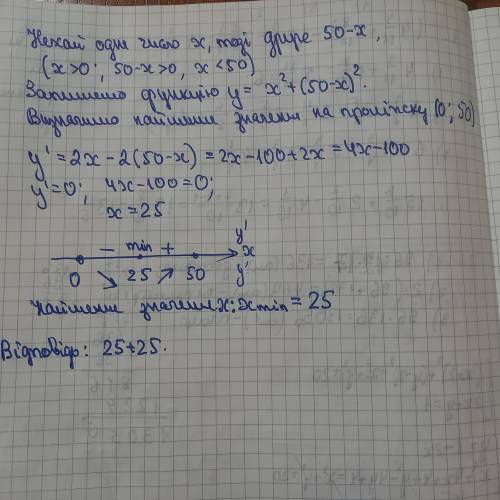 Нехай одне число x, тоді друге 50-x,
(x>0; 50-x>0, x<50)
Запишемо функцію y= x²+(50-x)².
Визначимо найменше значення на проміжку (0; 50)
y'=2x-2(50-x)=2x-100+2x=4x-100
y'=0; 4x-100=0;
x=25
- min + y'
x
0 ↘ 25 ↗ 50 y'
Найменше значення x: xmin = 25
Відповідь: 25+25.